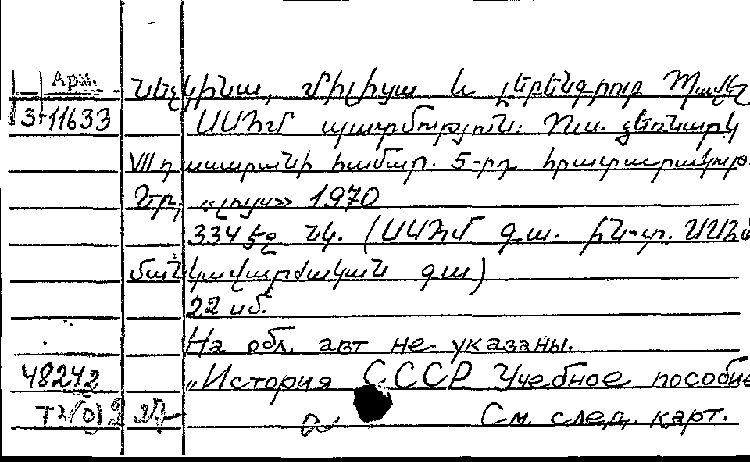 Арм. Նեչկինա, Միլիցա և Լեյբենգրուբ Պավել
3-11633 ՍՍՀՄ պատմություն: Ուս. ձեռնարկ
VII դասարանի համար. 5-րդ հրատարակութ.
Եր., «Լույս» 1970
334 էջ նկ. (ՍՍՀՄ գ.ա.
մանկավարժական գ.ա)
22 սմ.
На обл. авт не указаны.
48242 „История СССР Учебное пособие
См. след. карт.